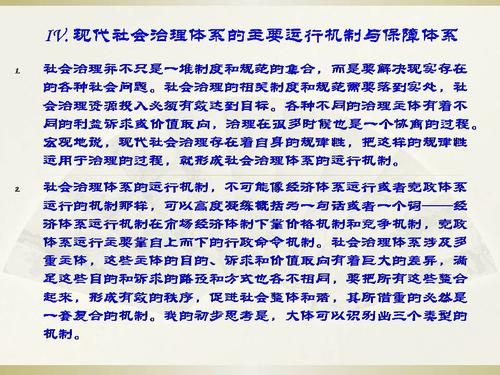 IV. 现代社会治理体系的主要运行机制与保障体系
1. 社会治理并不只是一堆制度和规范的集合，而是要解决现实存在
的各种社会问题。社会治理的相关制度和规范需要落到实处，社
会治理资源投入必须有效达到目标。各种不同的治理主体有着不
同的利益诉求或价值取向，治理在很多时候也是一个协商的过程。
宏观地说，现代社会治理存在着自身的规律性，把这样的规律性
运用于治理的过程，就形成社会治理体系的运行机制。
2. 社会治理体系的运行机制，不可能像经济体系运行或者党政体系
运行的机制那样，可以高度凝练概括为一句话或者一个词——经
济体系运行机制在市场经济体制下靠价格机制和竞争机制，党政
体系运行主要靠自上而下的行政命令机制。社会治理体系涉及多
重主体，这些主体的目的、诉求和价值取向有着巨大的差异，满
足这些目的和诉求的路径和方式也各不相同，要把所有这些整合
起来，形成有效的秩序，促进社会整体和谐，其所借重的必然是
一套复合的机制。我的初步思考是，大体可以识别出三个类型的
机制。